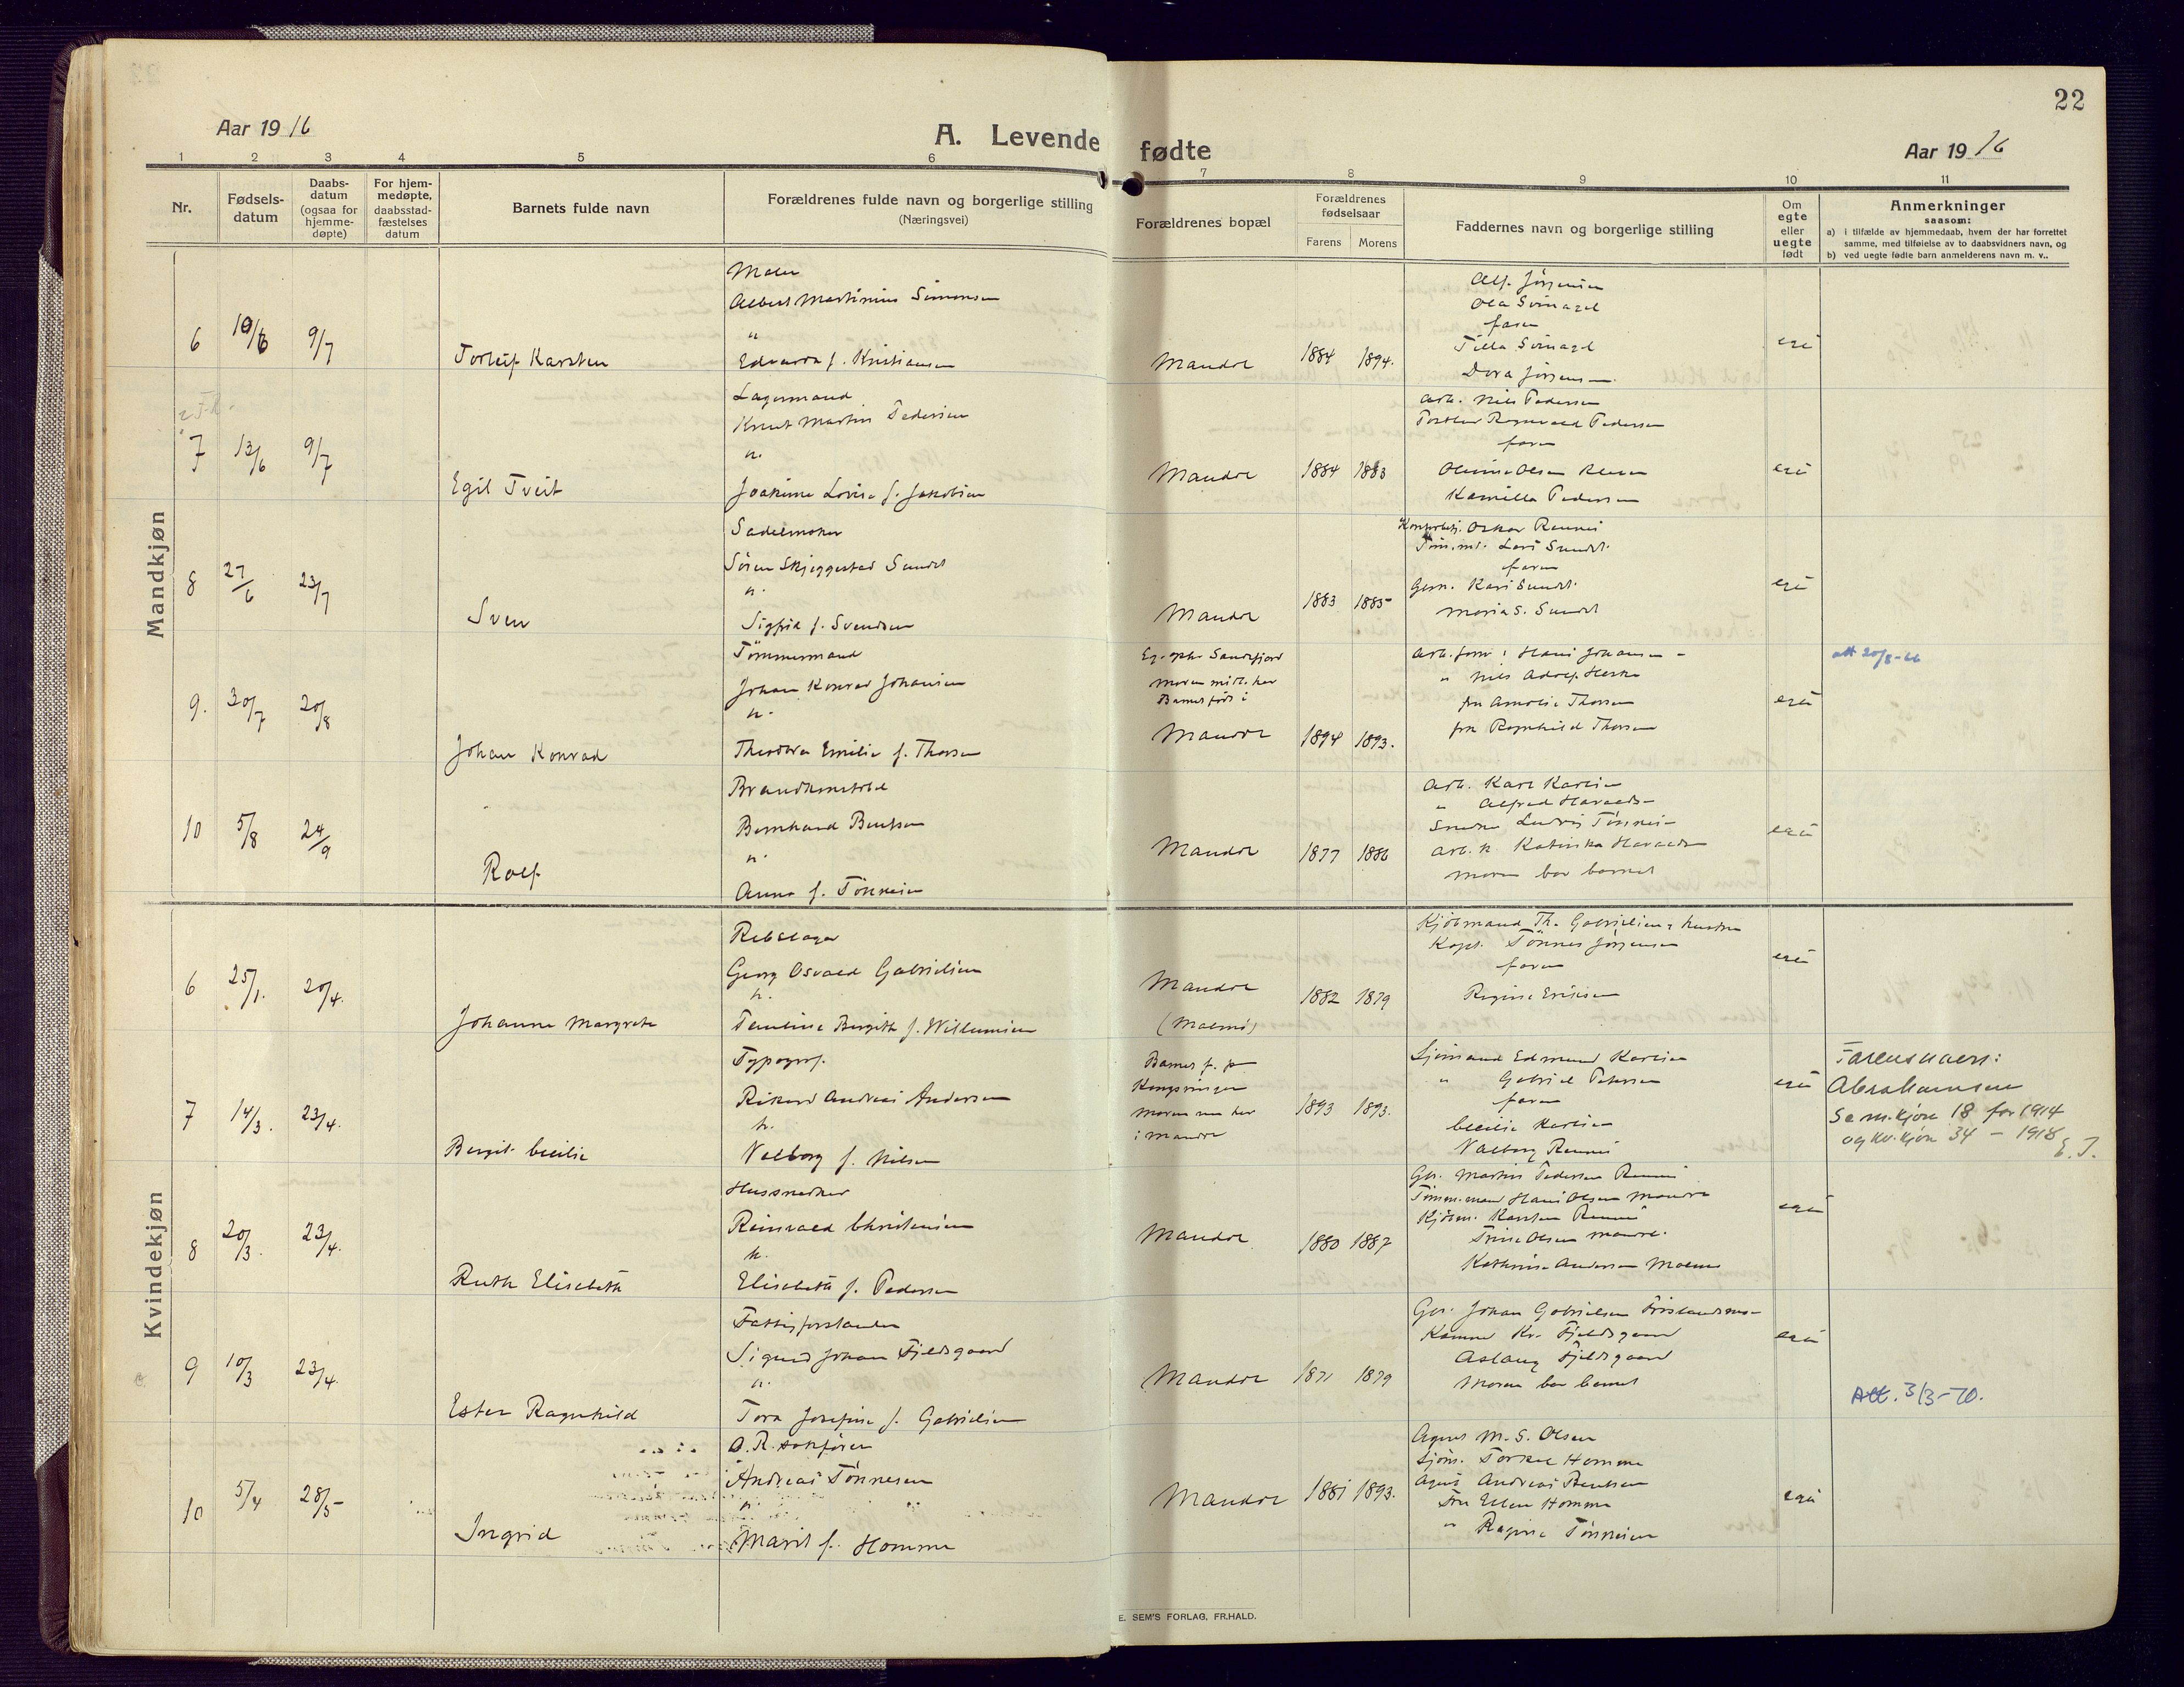 22
Aar 19 16
A. Levende fødte
Aar 19 16
1 2 3 4 5 6 7 8 9 10 11
Nr.
Fødsels-
datum
Daabs-
datum
(ogsaa for
hjemme-
døpte)
For hjem-
medøpte,
daabsstad-
fæstelses
datum
Barnets fulde navn
Forældrenes fulde navn og borgerlige stilling
(Næringsvei)
Forældrenes bopæl
Forældrenes
fødselsaar
Farens Morens
Faddernes navn og borgerlige stilling
Om
egte
eller
uegte
født
Anmerkninger
saasom:
a) i tilfælde av hjemmedaab, hvem der har forrettet
samme, med tilføielse av to daabsvidners navn, og
b) ved uegte fødte barn anmelderens navn m. v..
Mandkjøn
6 10/6 9/7
Torleif Karsten
Maler
Albert Martinius Simonsen
"
Edvarda f. Kristiansen
Mandal
1884 1894.
Alf. Jørgensen
Ola Svinagel
faren
Tilla Svinagel
Dora Jørgensen
egte
7 13/6 9/7
Egil Tveit
Lagermand
Knut Martin Pedersen
h.
Joakime Lovise f. Jakobsen
Mandal
1884 1883
Arb. Nils Pedersen
Torleiv Ragnvald Pedersen
faren
Kamilla Pedersen
egte
8 27/6 23/7
Sven
Sadelmaker
Søren Skjeggestad Sundt
h.
Sigfrid f. Svendsen
Mandal
1883 1885
Oskar Rennes
Lars Sundt.
faren
Kari Sundt.
Maria S. Sundt
egte
9. 30/7 20/8
Johan Konrad
Tømmermand
Johan Konrad Johansen
h.
Theodora Emilie f. Thorsen
Eg. oph. Sandefjord
Moren midl. her
Barnet født i
Mandal
1894 1893.
Arb. form: Hans Johansen
" Nils Adolf Heske
fru Amalie Thorsen
frk Ragnhild Thorsen
egte
att 20/8-66
10 5/8 24/9
Rolf
Brandkonstabel
Bernhard Bentsen
h.
Anna f. Tønnesen
Mandal
1877 1886
Arb. Karl Karlsen
" Alfred Haraldsen
Snedker Ludvig Tønnesen
Arb. h. Katinka Haraldsen
moren bar barnet
egte
Kvindekjøn
6 25/1. 20/4.
Johanne Margrete
Rebslager
Georg Osvald Gabrielsen
h.
Tomine Birgitte f. Willumsen
Mandal
(Malmø)
1882 1879
Kjøbmand Th. Gabrielsen & hustru
Kapt. Tønnes Jørgensen
faren
Regine Eriksen
egte
7 14/3. 23/4.
Bergit Cecilie
Typograf.
Rikard Andreas Andersen
h.
Valborg f. Nilsen
Barnet f. på
Kongsvinger
Moren nu her
i Mandal
1893 1893.
Sjømand Edmund Karlsen
" Gabriel Petersen
faren
Cecilie Karlsen
Valborg Rennes
egte
Farens navn:
Abrahamsen
Se m.kjøn 18 for 1914
og kv.kjøn 34 – 1918 E. J.
8 20/3. 23/4.
Ruth Elisabeth
Hussnedker
Reinvald Christensen
h.
Elisabeth f. Pedersen
Mandal
1880 1887
Gbr. Martin Pedersen Rennes
Tømm.mand Hans Olsen Mandal
Kjøbm. Karsten Rennes
Trine Olsen Mandal.
Kathrine Andersen Malmø
egte
9 10/3 23/4.
Ester Ragnhild
Fattigforstander
Sigurd Johan Fjeldsgaard
h.
Tora Josefine f. Gabrielsen
Mandal
1871 1879
Gbr. Johan Gabrielsen
Kr. Fjeldsgaard
Aslaug Fjeldsgaard
Moren bar barnet
egte
Att. 3/3-70.
10 5/4 28/5
Ingrid
O.R. sakfører
Andreas Tønnesen
h
Marit f. Homme
Mandal
1881 1893.
Agent M. S. Olsen
Sjøm. Torkel Homme
Agent Andreas Bentsen
Fru Ellen Homme
" Regine Tønnesen
egte
E. SEM'S FORLAG, FR.HALD.